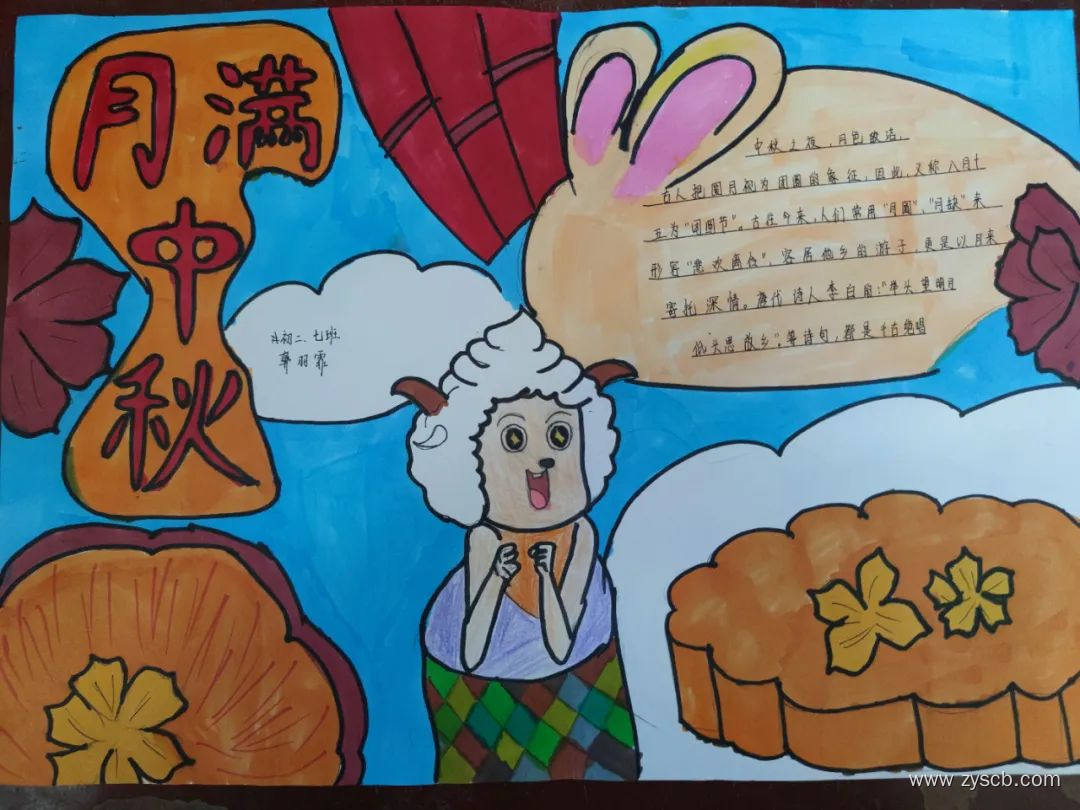 月满中秋
中秋之夜，月色皎洁，
古人把圆月视为团圆的象征，因此，又称八月十
五为“团圆节”。古往今来，人们常用“月圆”、“月缺”来
形容“悲欢离合”，客居他乡的游子，更是以月来
寄托深情。唐代诗人李白的：“举头望明月
低头思故乡”。等诗句，都是千古绝唱
初二、七班
羽霏
www.zyscb.com